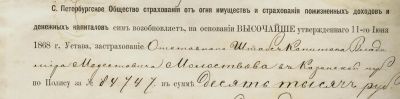 С. Петербургское Общество страхованiя отъ огня имуществъ и страхованiя пожизненныхъ доходовъ и
денежныхъ капиталовъ симъ возобновляетъ, на основанiи ВЫСОЧАЙШЕ утвержденнаго 11-го Iюня
1868 г. Устава, застрахованiе Отставнаго Штабсъ Капитана Владимiра Модестовича Молоствова въ Казанской губ
по Полису за № 84747. въ суммѣ Десять тысячъ руб